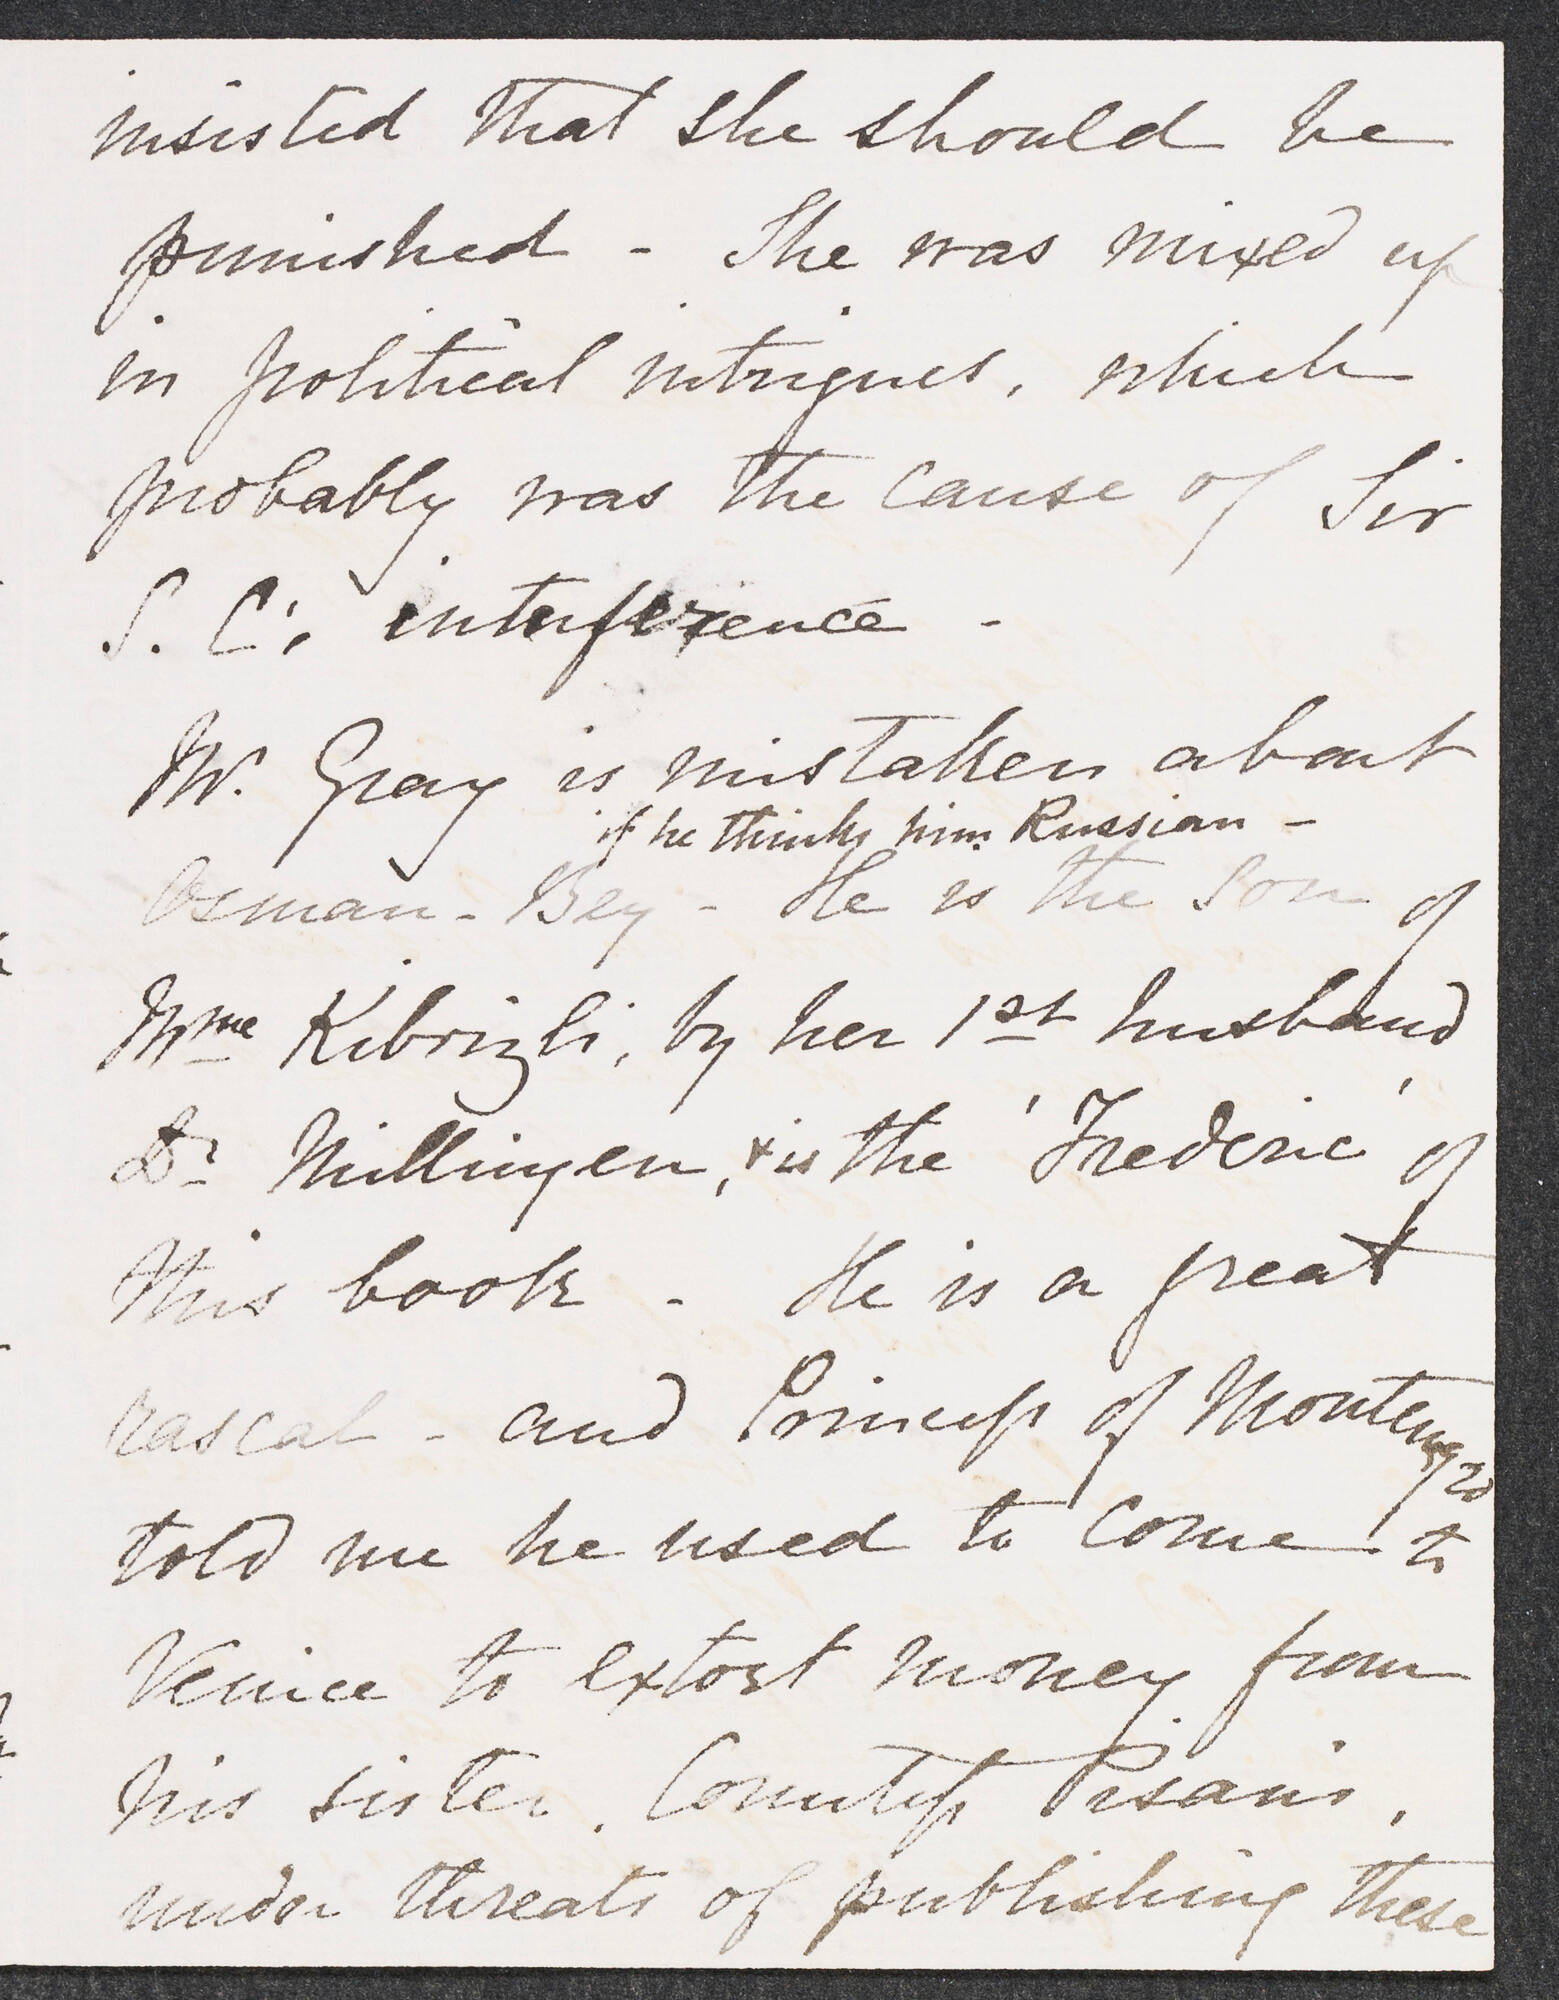 insisted that she should be
punished - She was mixed up
in political intrigues, which
probably was the cause of Sir
S. C's interference -
Mr. Gray is mistaken about
if he thinks him Russian -
Osman-Bey - He is the Son of
Mme Kibrizli, by her 1st husband
Dr Millingen, & is the 'Frederic' of
this book - He is a great
rascal - and Princess of Montenegro
told me he used to come to
Venice to extort money from
his sister, Countess Pisani,
under threats of publishing these